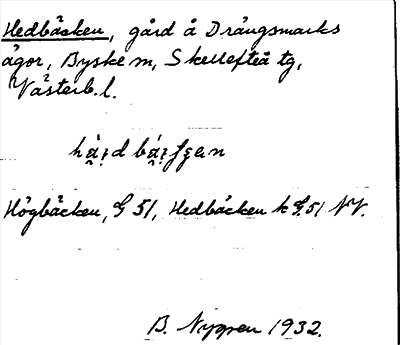 Hedbäcken, gård å Drängsmarks
ägor, Byske sn, Skellefteå tg,
Västerb. l.
Högbäcken, G 51, Hedbäcken h G 51 NV.
B. Nygren 1932.